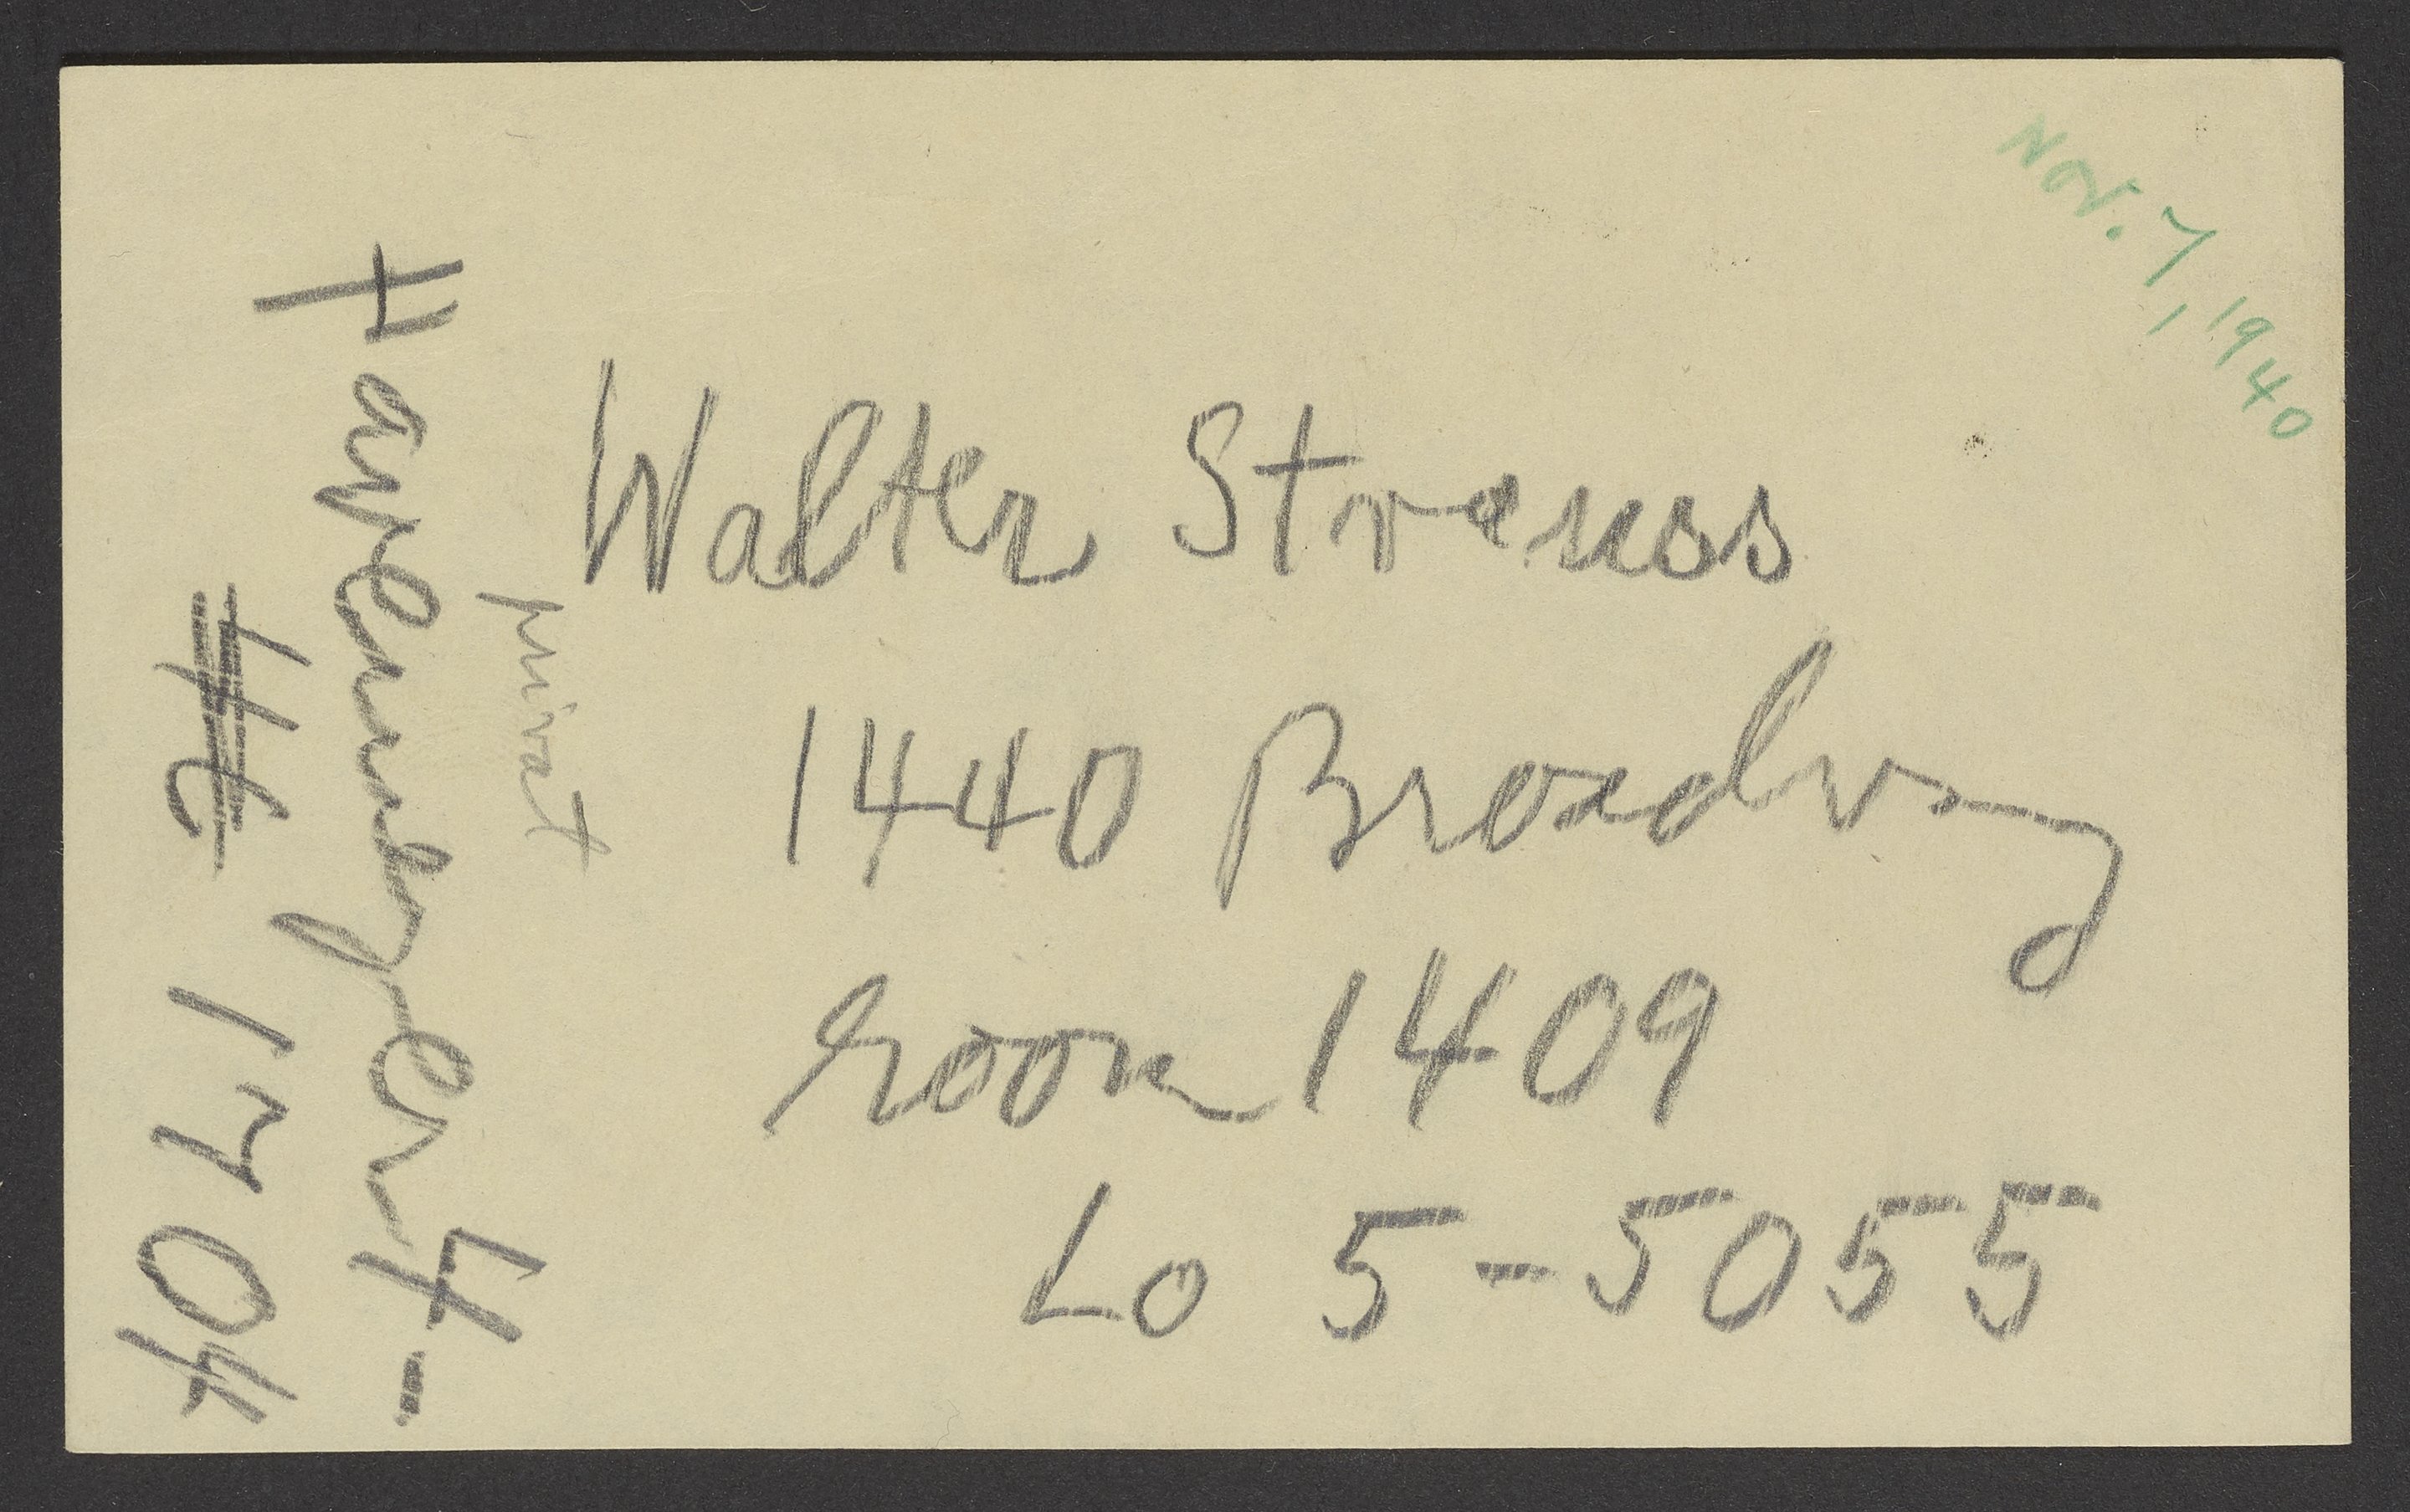 Nov. 7, 1940
Walter Strauss
1440 Broadway
room 1409
Lo 5-5055
privat
Havemeyer 4-
1704